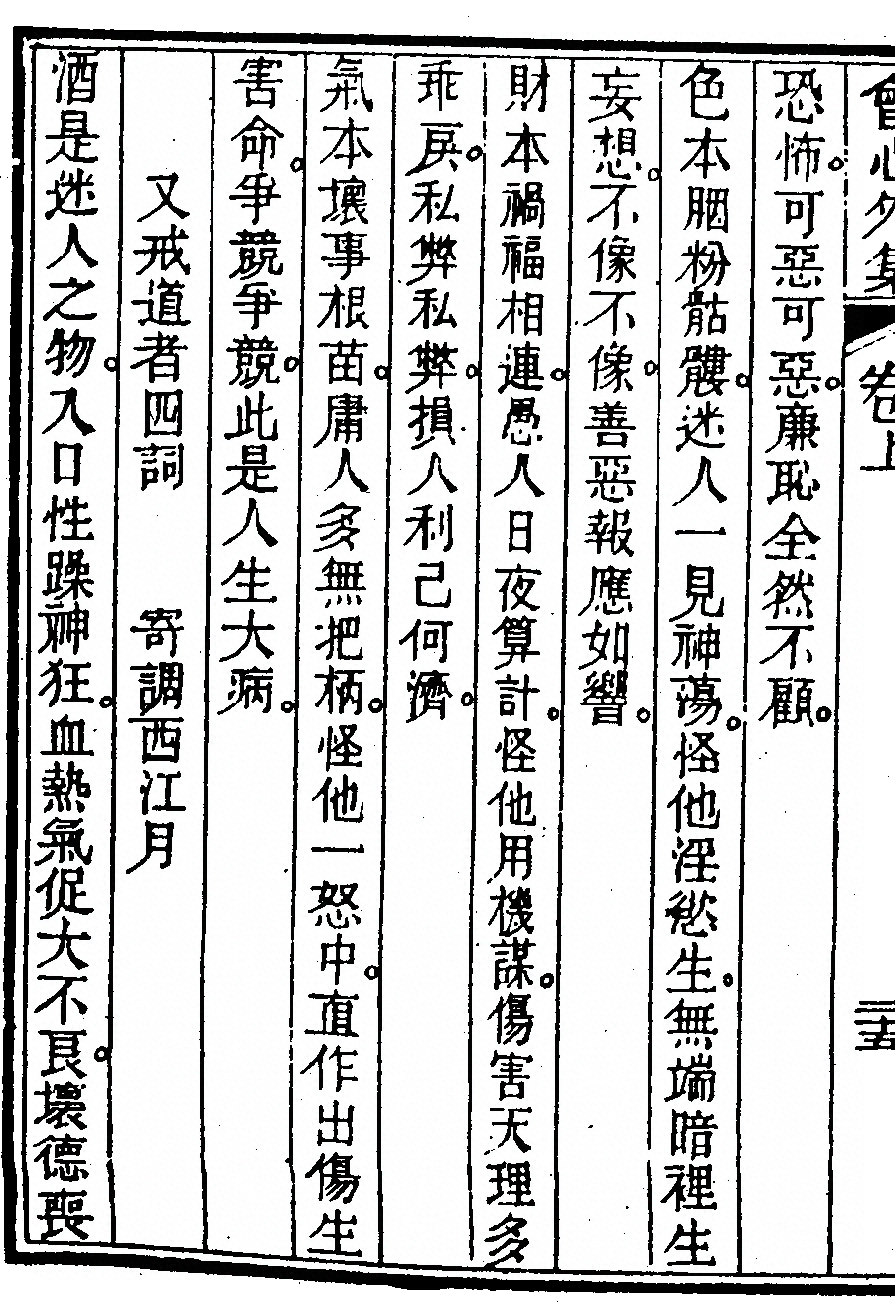 會心外集 卷上 三十五
恐怖。可惡可惡。廉恥全然不顧。
色本胭粉骷髏。迷人一見神蕩。怪他淫慾生。無端暗裡生
妄想。不像不像。善惡報應如響。
財本禍福相連。愚人日夜算計。怪他用機謀。傷害天理多
乖戾。私弊私弊。損人利己何濟。
氣本壞事根苗。庸人多無把柄。怪他一怒中。直作出傷生
害命。爭競爭競。此是人生大病。
又戒道者四詞 寄調西江月
酒是迷人之物。入口性躁神狂。血熱氣促大不良。壞德喪